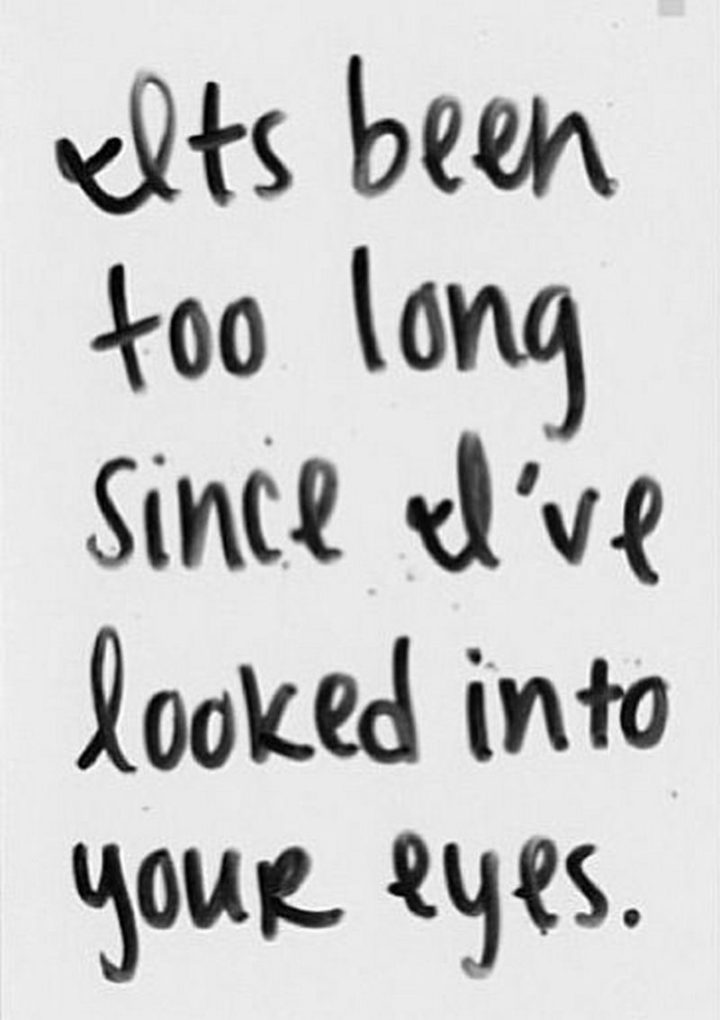 Its been
too long
since I've
looked into
your eyes.